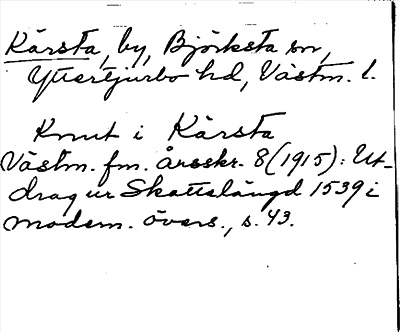 Kärsta, by, Björksta sn,
Yttertjurbo hd, Västm. l.
Knut i Kärsta
Västm. fm. årsskr. 8 (1915): Ut-
drag ur Skattelängd 1539 i
modern. övers., s. 43.